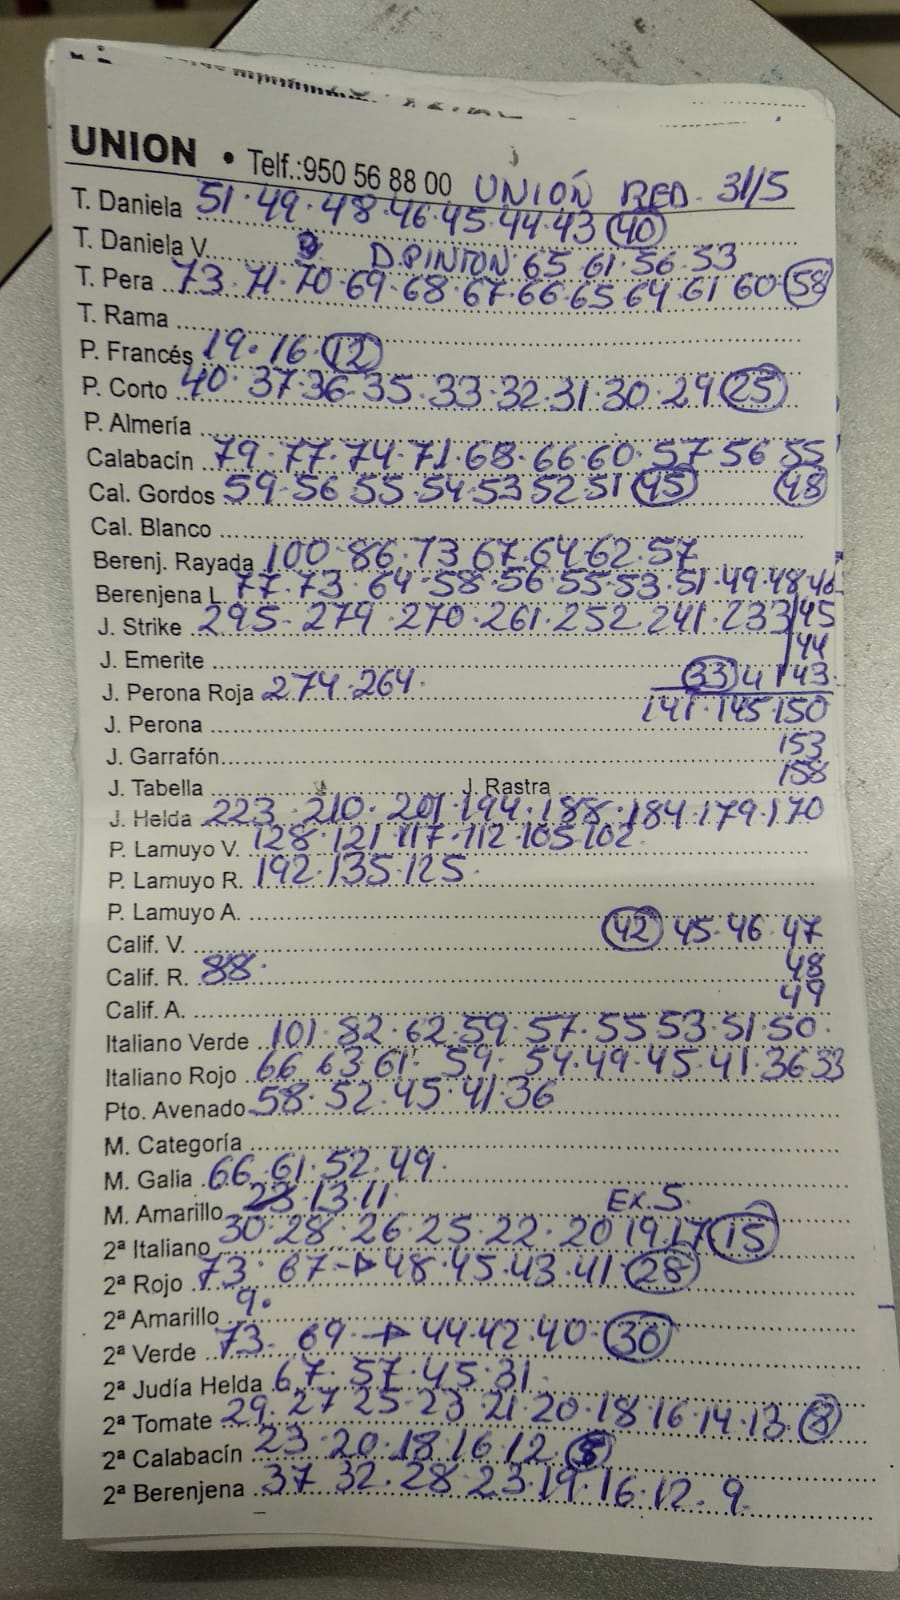 UNION • Telf.:950 56 88 00 UNIÓN RED. 31/5
T. Daniela 51·49·48·46·45·44·43 (40)
T. Daniela V. D.PINTON 65 61·56·53
T. Pera 73·71·70·69·68·67·66·65 64·61 60·(58)
T. Rama
P. Francés 19·16·(12)
P. Corto 40·37·36·35·33·32·31·30·29 (25)
P. Almería
Calabacín 79·77·74·71·68·66·60·57·56 55
Cal. Gordos 59·56 55·54·53 52 51 (45) (48)
Cal. Blanco
Berenj. Rayada 100·86·73 67·64·62·57
Berenjena L 77·73·64·58·56·55·53·51·49·48·46
J. Strike 295-279·270·261·252·241·233 45
44
J. Emerite
J. Perona Roja 274·264· (33) 41 43
141·145·150
J. Perona
153
J. Garrafón
158
J. Tabella J. Rastra
J. Helda 223·210·201·194·188·184·179·170
P. Lamuyo V. 128·121·117·112·105·102
P. Lamuyo R. 192·135·125·
P. Lamuyo A.
Calif. V. (42) 45·46·47
48
Calif. R. 88·
49
Calif. A.
Italiano Verde 101·82·62·59·57·55 53·51·50·
Italiano Rojo 66 63 61·59·54·49·45·41·36·33
Pto. Avenado 58·52·45·41·36
M. Categoría
M. Galia 66·61·52·49·
M. Amarillo 13·11· EX.S.
2ª Italiano 30·28·26·25·22·20 19·17 (15)
2ª Rojo 73·67→48·45·43·41 (28)
2ª Amarillo 9·
2ª Verde 73-69→44·42·40·(30)
2ª Judía Helda 67·57·45·31·
2ª Tomate 29·27 25·23 21·20·18·16·14·13 (8)
2ª Calabacín 23·20·18·16·12
2ª Berenjena 37 32·28·23·19·16·12·9